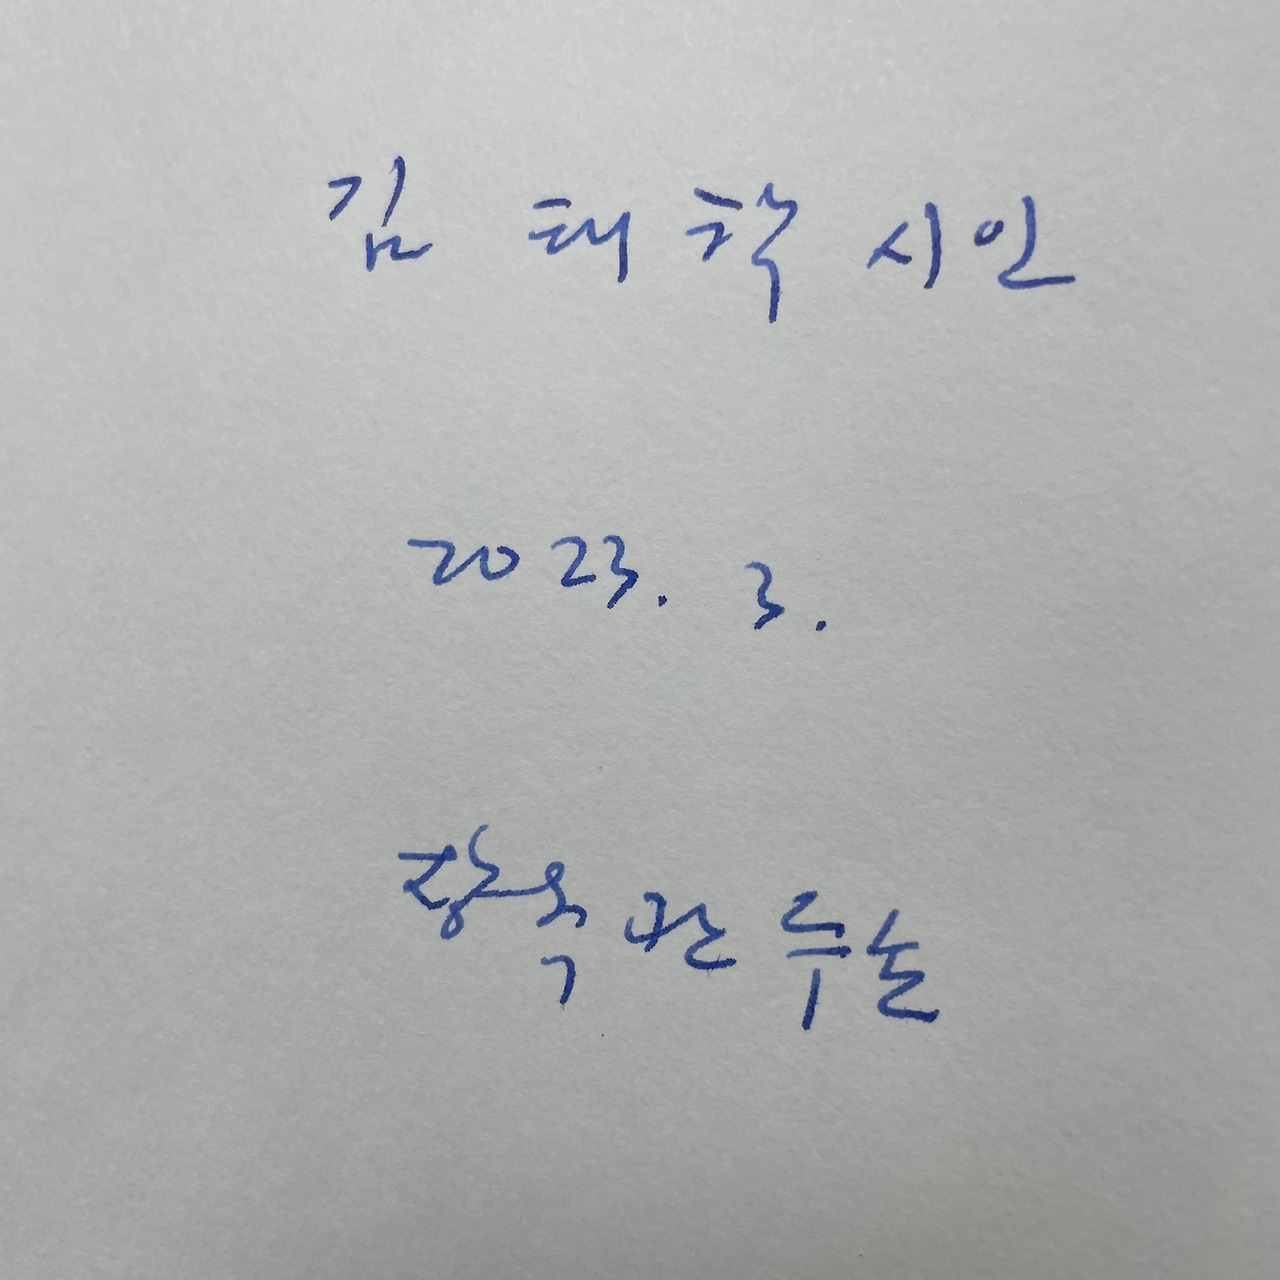 김 태 시인
2023. 3.
장옥관 두손